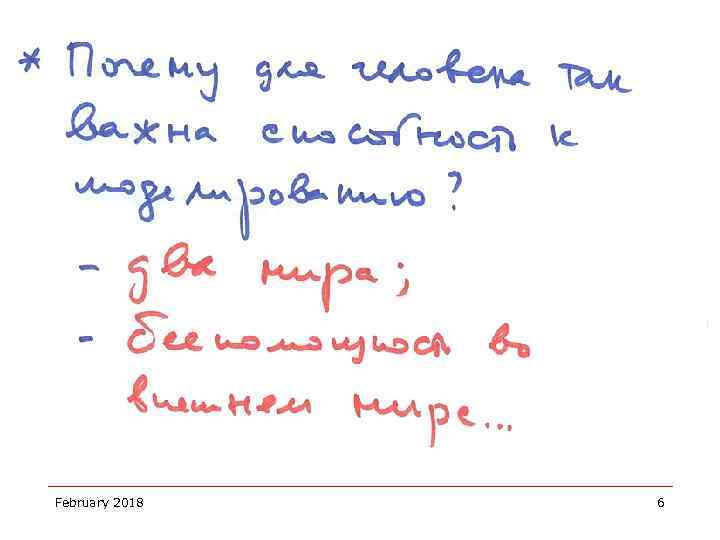 * Почему для человека так
важна способность к
моделированию?
- два мира;
- беспомощность во
внешнем мире...
February 2018 6